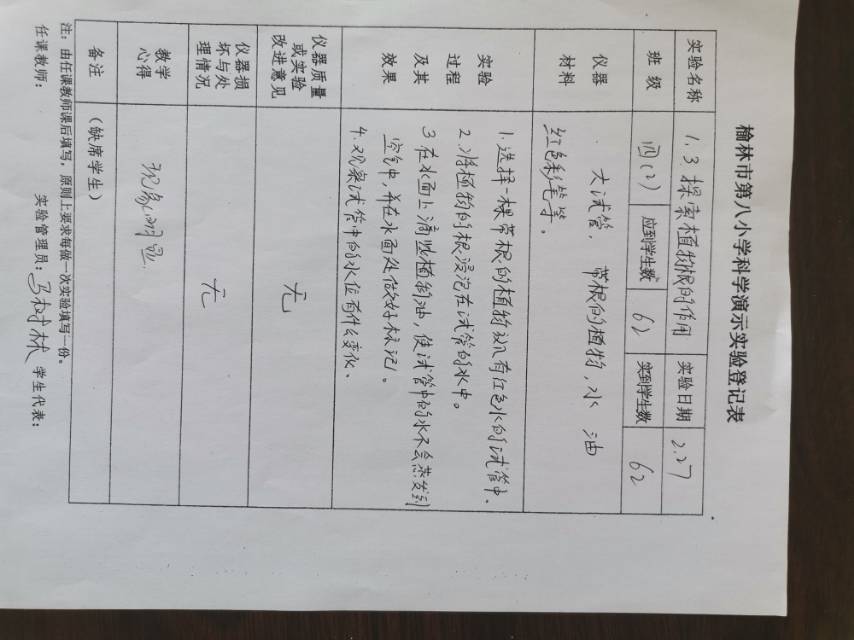 榆林市第八小学科学演示实验登记表
实验名称 1.3探索植物根的作用 实验日期 2.27
班级 四(2) 应到学生数 62 实到学生数 62
仪器材料 大试管，带根的植物，水 油
红色彩笔等。
实验过程及其效果
1.选择一棵带根的植物 有红色水的试管中.
2.将植物的根浸泡在试管的水中。
3在水面上滴些植物油，使试管中的水不会蒸发到
空气中，并在水面处做好标记。
4.观察试管中的水位有什么变化.
仪器质量或实验改进意见 无
仪器损坏与处理情况 无
教学心得 现象明显.
备注 （缺席学生）
注：由任课教师课后填写，原则上要求每做一次实验填写一份。
任课教师： 实验管理员：马树林 学生代表：